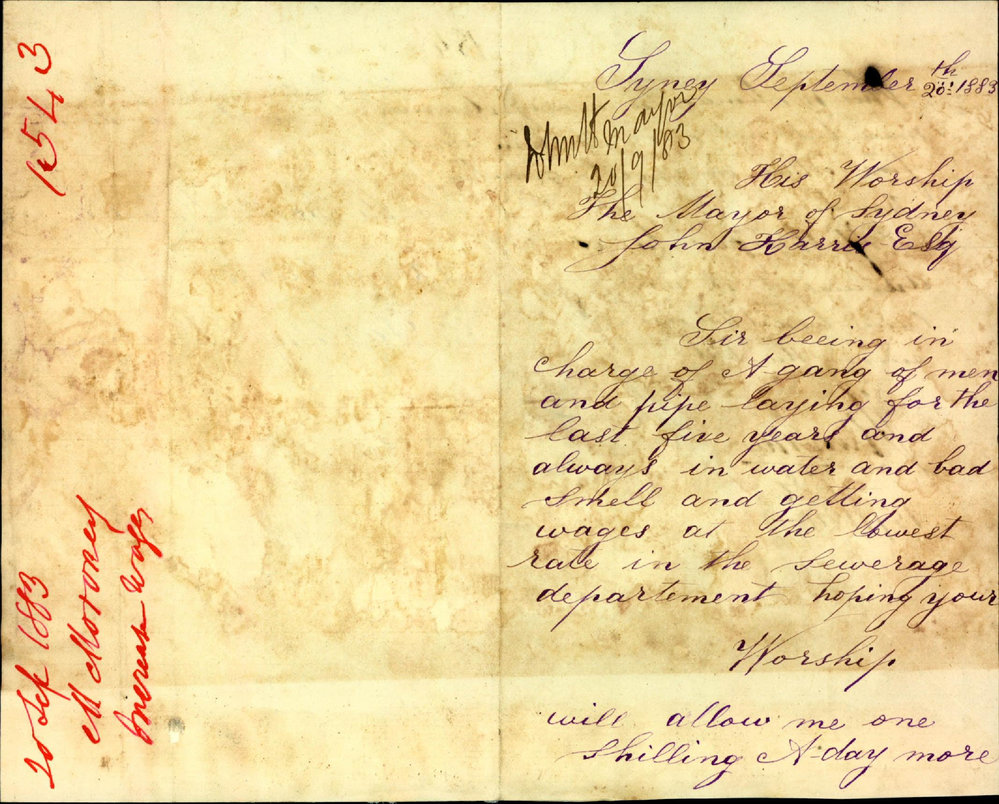 1543
20 Sep 1883
M Moroney
Increase Wages
Syney September 20th 1883
Mayor
20/9/83
His Worship
The Mayor of Sydney
John Harris Esq
Sir beeing in
charge of A gang of men
and pipe laying for the
last five years and
always in water and bad
smell and getting
wages at the lowest
rate in the sewerage
departement hoping your
Worship
will allow me one
shilling A day more